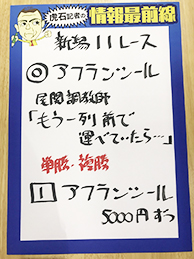 虎石記者の
情報最前線
新潟11レース
◎アフランシール
尾関調教師
「もう一列前で
運べて‥たら…」
単勝・複勝
1 アフランシール
5000円ずつ